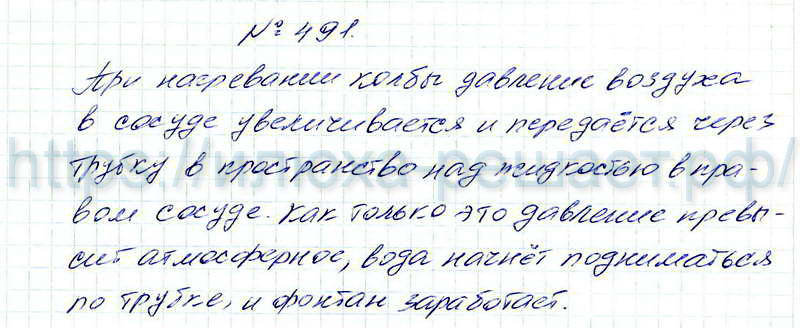 № 491.
При нагревании колбы давление воздуха
в сосуде увеличивается и передаётся через
трубку в пространство над жидкостью в пра-
вом сосуде. Как только это давление превы-
сит атмосферное, вода начнёт подниматься
по трубке, и фонтан заработает.